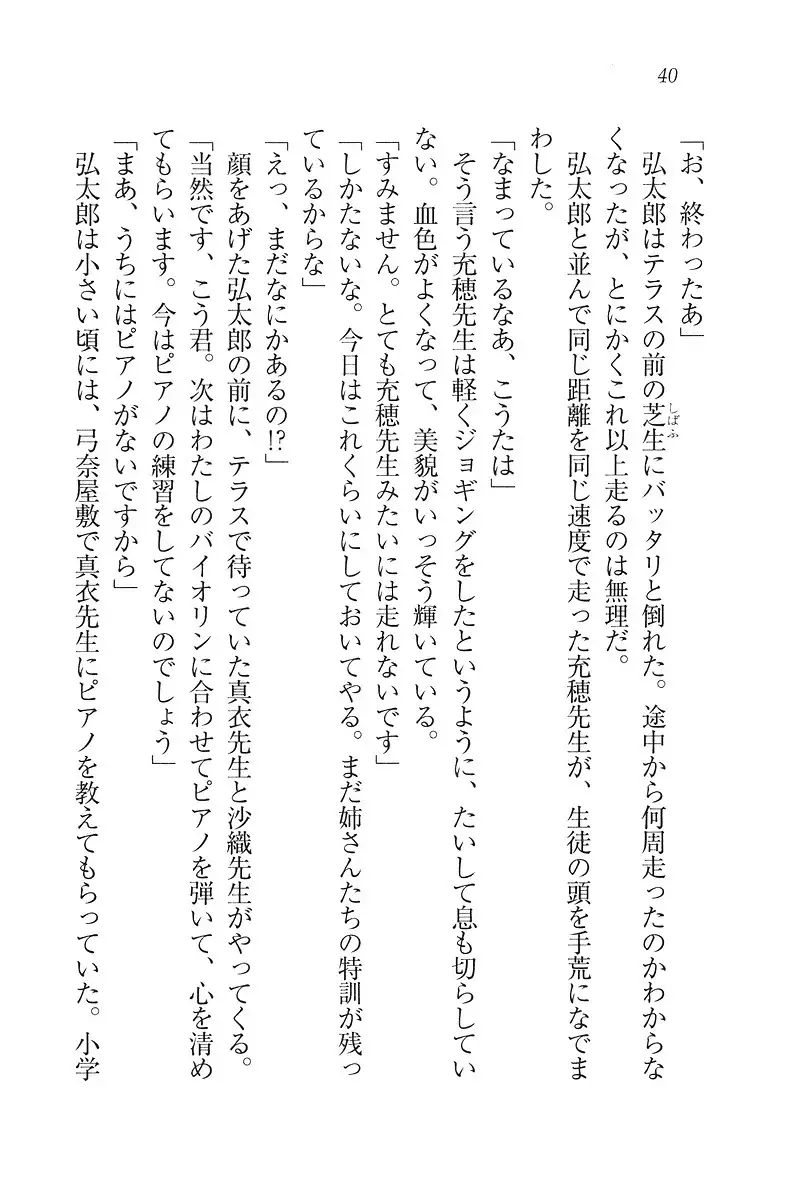 40
「お、終わったあ」
弘太郎はテラスの前の芝生にバッタリと倒れた。途中から何周走ったのかわからな
しばふ
くなったが、とにかくこれ以上走るのは無理だ。
弘太郎と並んで同じ距離を同じ速度で走った充穂先生が、生徒の頭を手荒になでま
わした。
「なまっているなあ、こうたは」
そう言う充穂先生は軽くジョギングをしたというように、たいして息も切らしてい
ない。血色がよくなって、美貌がいっそう輝いている。
「すみません。とても充穂先生みたいには走れないです」
「しかたないな。今日はこれくらいにしておいてやる。まだ姉さんたちの特訓が残っ
ているからな」
「えっ、まだなにかあるの!?」
顔をあげた弘太郎の前に、テラスで待っていた真衣先生と沙織先生がやってくる。
「当然です、こう君。次はわたしのバイオリンに合わせてピアノを弾いて、心を清め
てもらいます。今はピアノの練習をしてないのでしょう」
「まあ、うちにはピアノがないですから」
弘太郎は小さい頃には、弓奈屋敷で真衣先生にピアノを教えてもらっていた。小学